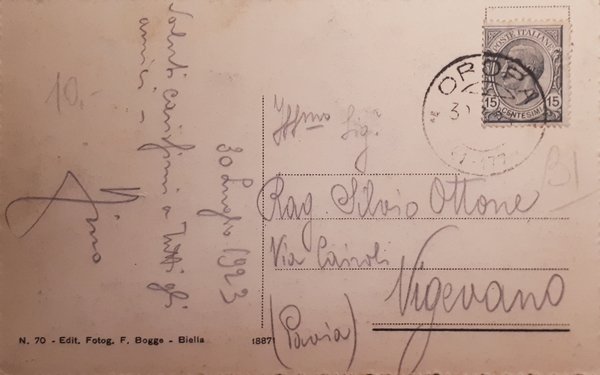 Saluti carissimi a tutti gli
amici -
Nino
30 Luglio 1923
10.-
POSTE ITALIANE
15 CENTESIMI 15
OROPA
30
Ill͞mo Sig.r
Rag. Silvio Ottone
Via Cairoli
Vigevano
(Pavia)
B1
N. 70 - Edit. Fotog. F. Bogge - Biella
18871